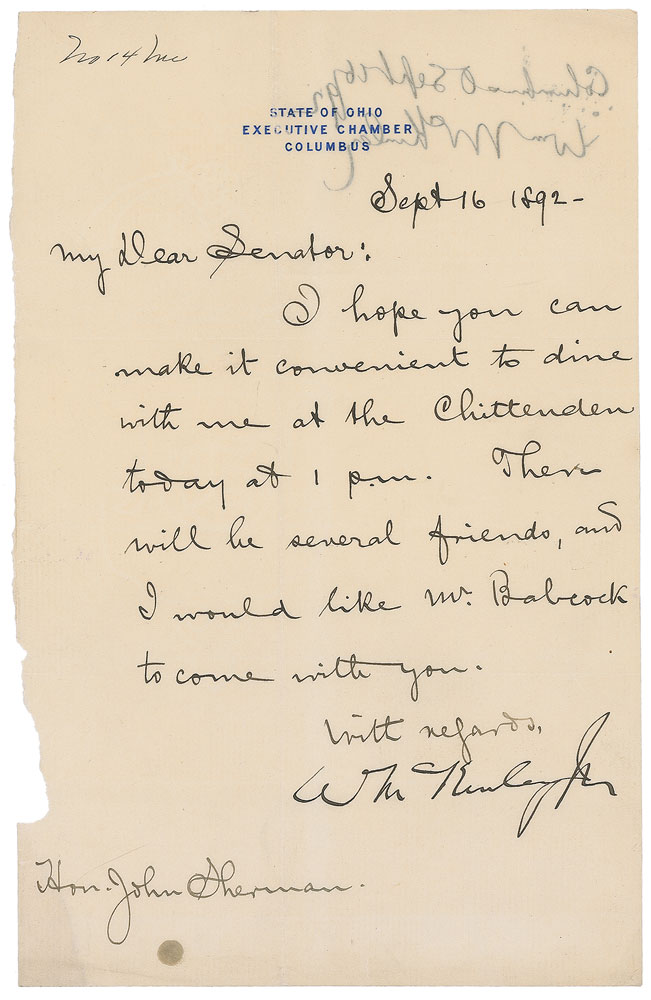 No 14 Mc
Columbus O Sept 16th
92
Wm McKinley
STATE OF OHIO
EXECUTIVE CHAMBER
COLUMBUS
Sept 16 1892-
My Dear Senator:
I hope you can
make it convenient to dine
with me at the Chittenden
today at 1 p.m. There
will be several friends, and
I would like Mr. Babcock
to come with you.
With regards,
W McKinley Jr
Hon. John Sherman.